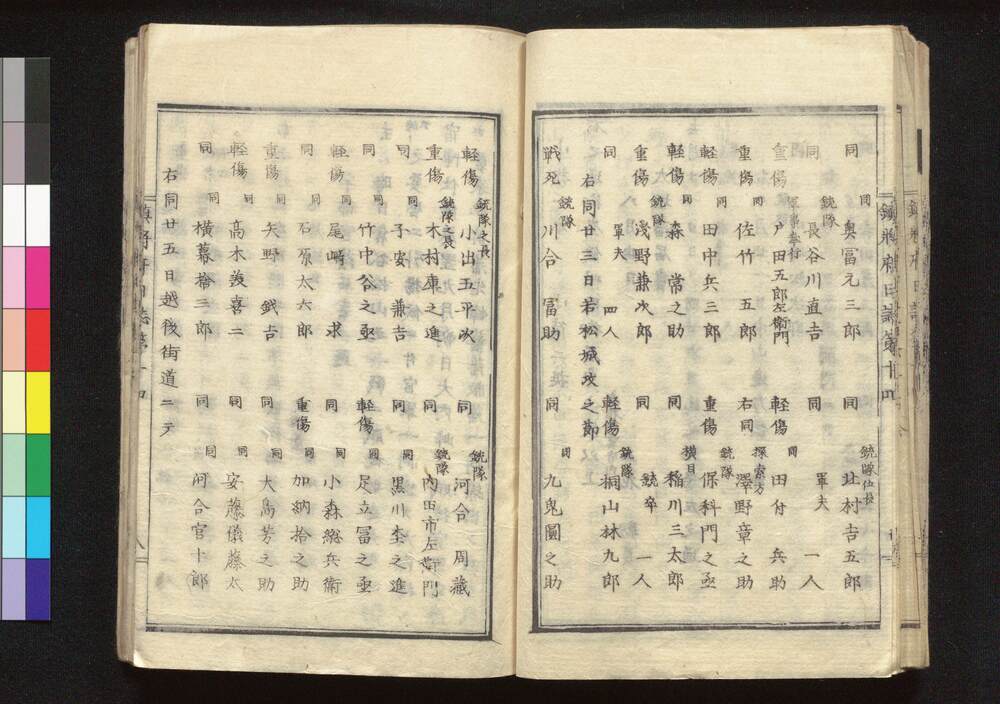 同 同 奥冨元三郎 同 銃隊伍長 北村吉五郎
同 銃隊 長谷川直吉 同 軍夫 一人
重傷 軍事奉行 戸田五郎左衛門 軽傷 同 田付兵助
重傷 同 佐竹五郎 右同 探索方 澤野章之助
軽傷 同 田中兵二郎 重傷 銃隊 保科門之亟
軽傷 同 森常之助 同 横目 稲川三太郎
重傷 銃隊 浅野兼次郎 同 銃卒 一人
同 軍夫 四人 軽傷 銃隊 桐山林九郎
右同廿三日若松城攻之節
戦死 銃隊 川合冨助 同 同 九鬼圖之助
軽傷 銃隊之長 小出五平次 同 銃隊 河合周藏
重傷 銃隊之長 木村庫之進 同 銃隊 内田市左衛門
同 同 子安兼吉 同 同 黒川杢之進
同 同 竹中谷之亟 軽傷 同 足立冨之亟
軽傷 同 尾崎求 同 同 小森総兵衛
同 同 石原太六郎 重傷 同 加納拾之助
重傷 同 矢野鉞吉 同 同 大島芳之助
軽傷 同 高木羨喜二 同 同 安藤儀藤太
同 同 横幕捨三郎 同 同 河合官十郎
右同廿五日越後街道ニテ
鎮将府日誌第十四